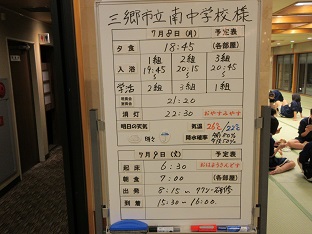 三郷市立南中学校様
7月8日(月) 予定表
夕食 18:45 (各部屋)
1組 2組 3組
入浴 19:45~ 20:15~ 20:45~
学活 2組 3組 1組
21:20
消灯 22:30 おやすみやす
明日の天気 気温 26℃/22℃
晴と 降水確率
7月9日(火) 予定表
起床 6:30 おはようさんどす
朝食 7:00 (各部屋)
出発 8:15~ タクシー研修
到着 15:30~16:00